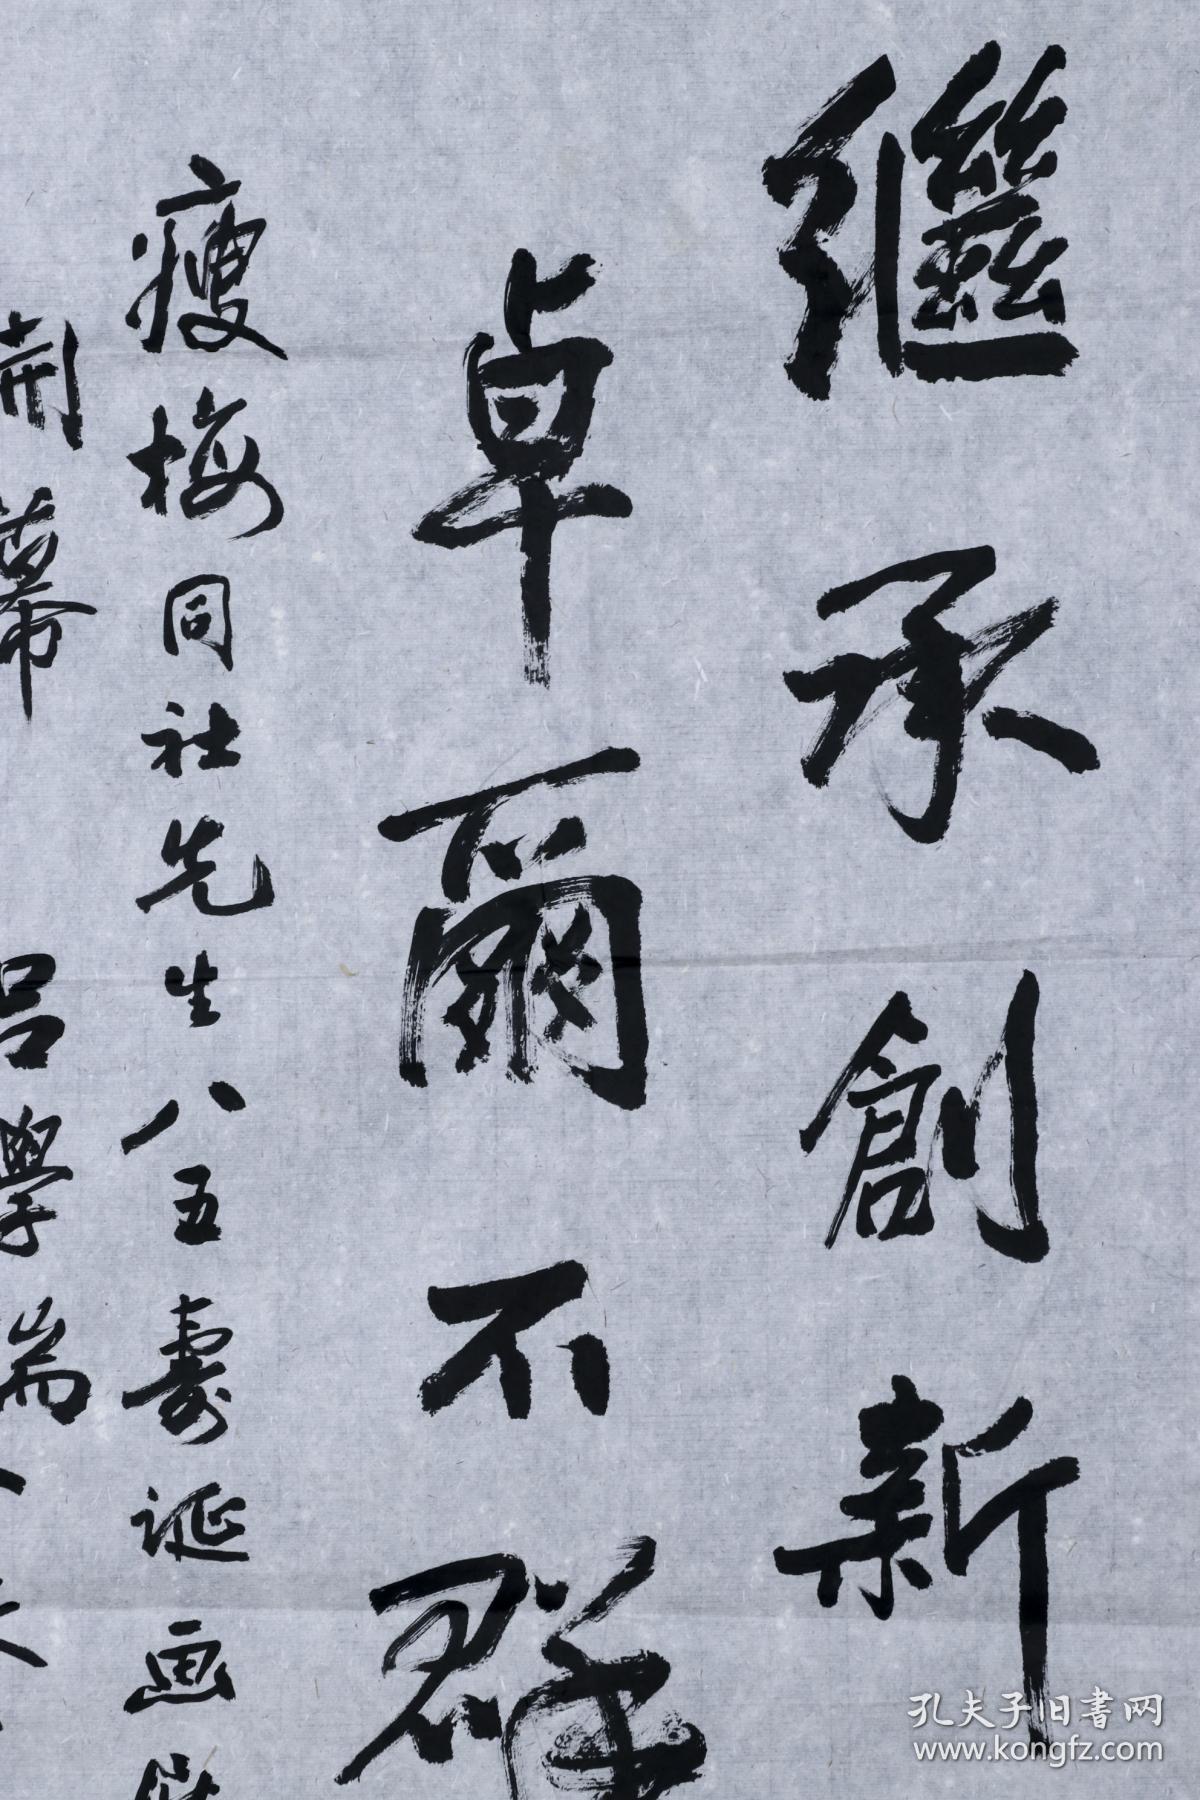 繼承創新
卓爾不群
瘦梅同社先生八五壽誕畫
開幕 呂學端
孔夫子旧書网
www.kongfz.com